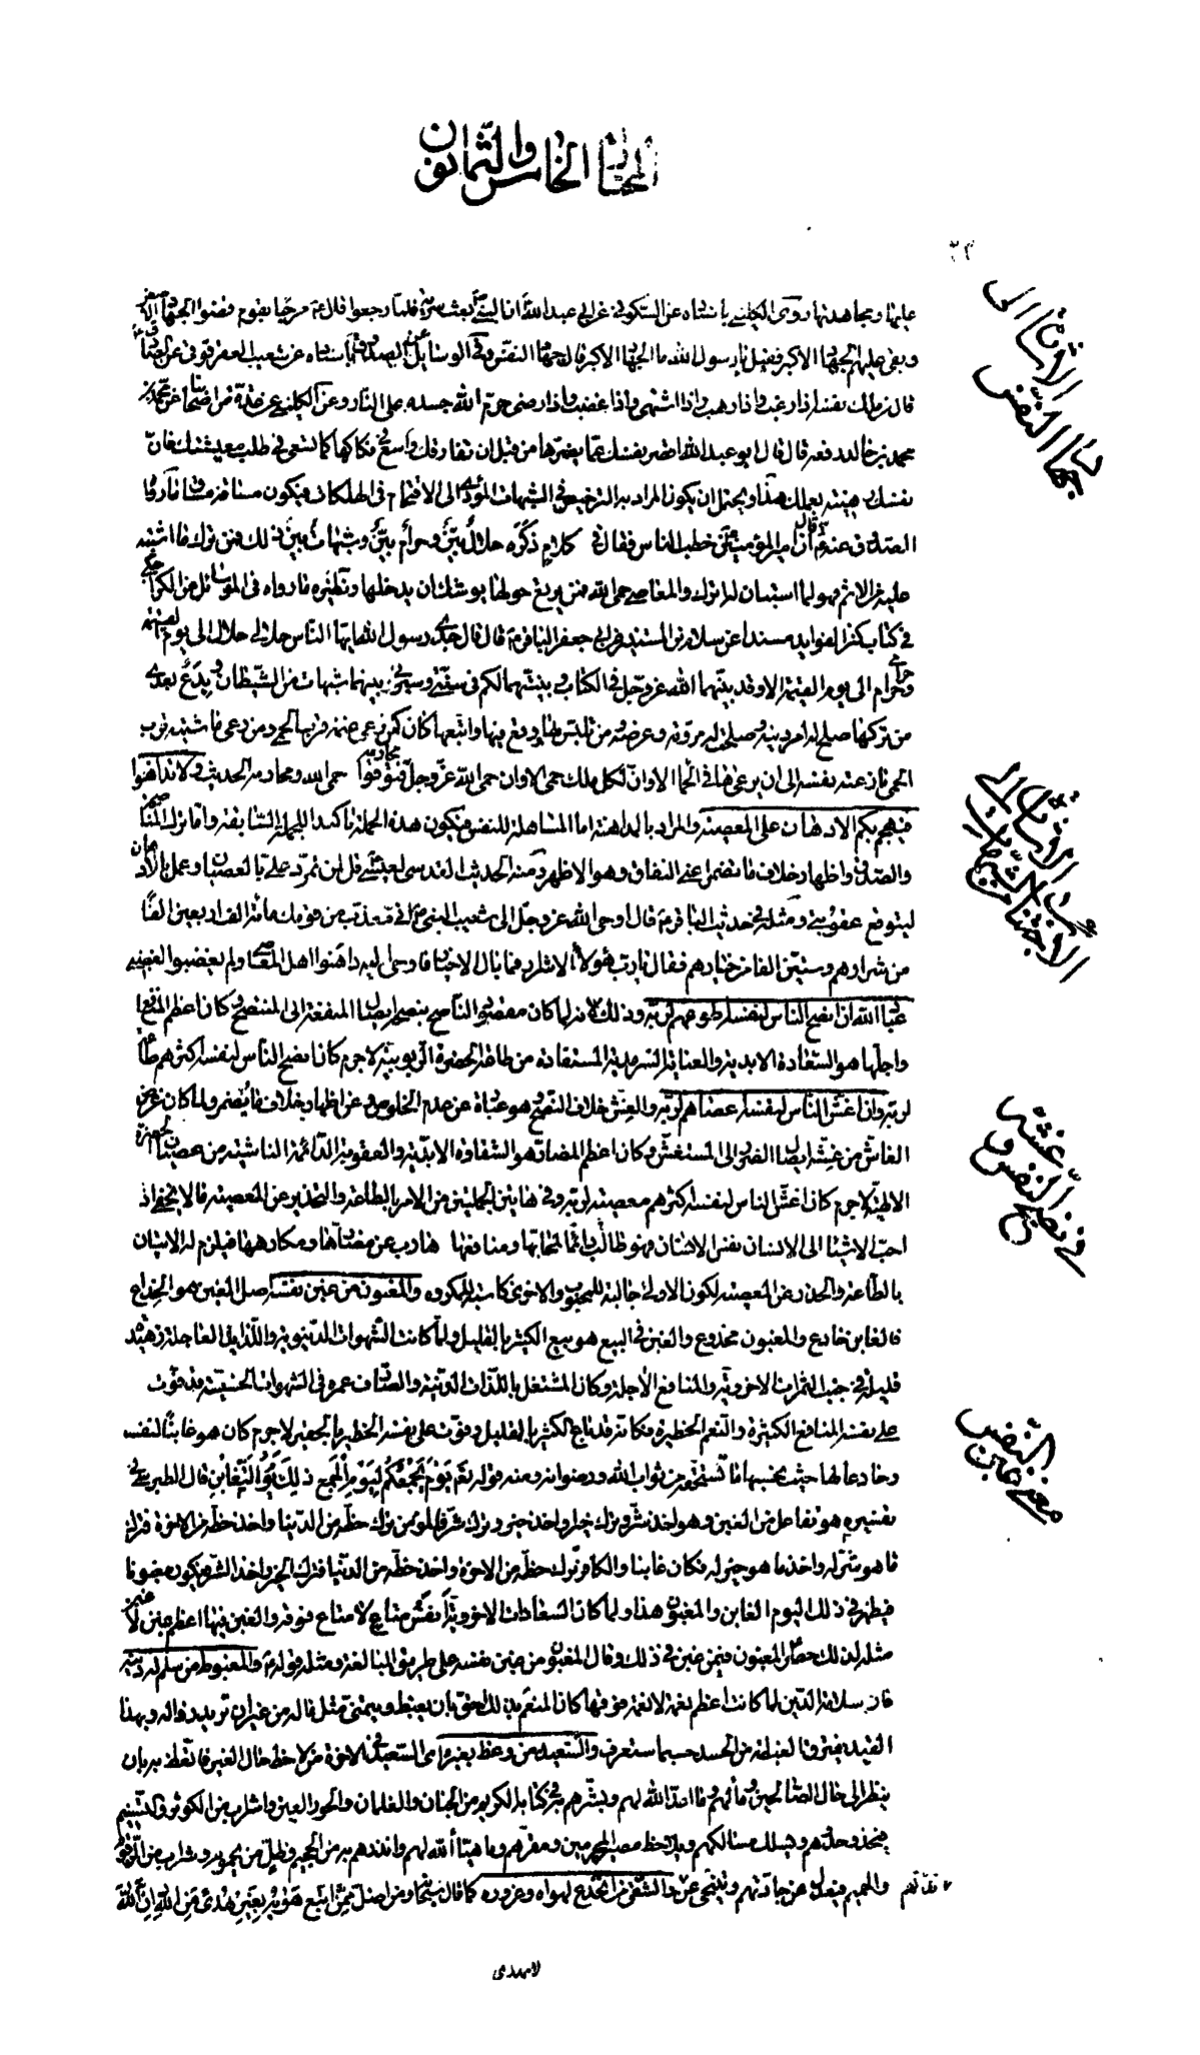 المختار الخامس والثمانون
الاشارة الى
جهاد النفس
عليها ومجاهدتها روى الكليني باسناده عن السكوني عن ابي عبد الله ان النبي بعث سرية فلما رجعوا قال مرحبا بقوم قضوا الجهاد الاصغر
وبقى عليهم الجهاد الاكبر فقيل يا رسول الله ما الجهاد الاكبر قال جهاد النفس وفي الوسائل عن الصدوق باسناده عن شعيب العقرقوفي عن الصادق
قال من ملك نفسه اذا رغب واذا رهب واذا اشتهى واذا غضب واذا رضى حرم الله جسده على النار وعن الكليني عن عدة من اصحابنا عن احمد بن
محمد بن خالد رفعه قال قال ابو عبد الله اقصر نفسك عما يضرها من قبل ان تفارقك واسع في فكاكها كما تسعى في طلب معيشتك فان
نفسك رهينة بعملك هذا ويحتمل ان يكون المراد به الترخيص في الشبهات المؤدي الى الاقتحام في الهلكات فيكون مساقه مساق ما رواه
الصدوق عنه قال ان امير المؤمنين خطب الناس فقال في كلام ذكره حلال بين وحرام بين وشبهات بين ذلك فمن ترك ما اشتبه
عليه من الاثم فهو لما استبان له اترك والمعاصي حمى الله فمن يرتع حولها يوشك ان يدخلها ونظيره ما رواه في الوسائل عن الكراجكي
في كتاب كنز الفوايد مسندا عن سلام بن المستنير عن ابي جعفر الباقر قال قال جدي رسول الله ايها الناس حلالي حلال الى يوم القيمة
وحرامي حرام الى يوم القيمة الا وقد بينهما الله عز وجل في الكتاب وبينتهما لكم في سنتي وسيرتي وبينهما شبهات من الشيطان وبدع بعدي
من تركها صلح له امر دينه وصلحت له مروته وعرضه ومن تلبس بها ووقع فيها واتبعها كان كمن رعى غنمه قرب الحمى ومن رعى ماشيته قرب
الحمى نازعته نفسه الى ان يرعاها في الحمى الا وان لكل ملك حمى الا وان حمى الله عز وجل محارمه فتوقوا حمى الله ومحارمه الحديث ولا تداهنوا
الاشارة الى
الاجتناب
فيهجم بكم الادهان على المعصية والمراد بالمداهنة اما المساهلة للنفس فيكون هذه الجملة تاكيدا للجملة السابقة واما ترك المناصحة
والصدق واظهار خلاف ما تضمر اعني النفاق وهو الاظهر ومنه الحديث القدسي لعيسى قل لمن تمرد على بالعصيان وعمل بالادهان
ليتوقع عقوبتي ومثله في حديث الباقر قال اوحى الله عز وجل الى شعيب النبي اني معذب من قومك مائة الف اربعين الفا
من شرارهم وستين الفا من خيارهم فقال يا رب هؤلاء الاشرار فما بال الاخيار فاوحى اليه داهنوا اهل المعاصي ولم يغضبوا لغضبي
عباد الله ان انصح الناس لنفسه اطوعهم لربه وذلك لانه لما كان مقصود الناصح بنصحه ايصال المنفعة الى المنتصح وكان اعظم المنافع
واجلها هو السعادة الابدية والعناية السرمدية المستفادة من طاعة الحضرة الربوبية لا جرم كان انصح الناس لنفسه اكثرهم طاعة
لربه وان اغش الناس لنفسه اعصاهم لربه والغش خلاف النصح وهو عبارة عن عدم الخلوص وعن اظهار خلاف ما يضمر ولما كان غرض
في نصح النفس و
غشه
الغاش من غشه ايصال الضرر الى المستغش وكان اعظم المضار هو الشقاوة الابدية والعقوبة الدائمة الناشية من عصيان الحضرة
الالهية لا جرم كان اغش الناس لنفسه اكثرهم معصية لربه وفي هاتين الجملتين من الامر بالطاعة والتحذير عن المعصية ما لا يخفى اذ
احب الاشياء الى الانسان نفس الانسان فهو طالب دائما لمحابها ومنافعها هارب عن مضارها ومكارهها فيلزم له الاتيان
بالطاعة والحذر عن المعصية لكون الاولى جالبة للمحبوب والاخرى كاسبة للمكروه والمغبون من غبن نفسه اصل الغبن هو الخداع
فالغابن خادع والمغبون مخدوع والغبن في البيع هو بيع الكثير بالقليل ولما كانت الشهوات الدنيوية واللذايذ العاجلة زهيدة
قليلة في جنب الثمرات الاخروية والمنافع الآجلة وكان المشتغل باللذات الدنية والصارف عمره في الشهوات الخسيسة قد فوت
معنى غبن
النفس
على نفسه المنافع الكثيرة والنعم الخطيرة فكانه قد باع الكثير بالقليل وفوت على نفسه الخطير بالحقير لا جرم كان هو غابنا لنفسه
وخادعا لها حيث بخسها ما تستحقه من ثواب الله ورضوانه ومنه قوله تعالى يوم يجمعكم ليوم الجمع ذلك يوم التغابن قال الطبرسي في
تفسيره هو تفاعل من الغبن وهو اخذ شر وترك خير او اخذ خير وترك شر فالمؤمن ترك حظه من الدنيا واخذ حظه من الاخرة فترك
ما هو شر له واخذ ما هو خير له فكان غابنا والكافر ترك حظه من الاخرة واخذ حظه من الدنيا فترك الخير واخذ الشر فيكون مغبونا
فيظهر في ذلك اليوم الغابن والمغبون هذا ولما كان السعادات الاخروية انفس متاع لا متاع فوقه والغبن فيها اعظم غبن لا غبن
مثله لذلك حصر المغبون فيمن غبن في ذلك وقال المغبون من غبن نفسه على طريق المبالغة ومثله قوله والمغبوط من سلم له دينه
فان سلامة الدين لما كانت اعظم نعمة لا نعمة فوقها كان المنعم بذلك احق بان يغبط ويتمنى مثل ماله من غير ان تريد زواله وبهذا
القيد يفترق الغبطة من الحسد حسبما ستعرف والسعيد من وعظ بغيره اي السعيد في الاخرة من لاحظ حال الغير فاتعظ به بان
ينظر الى حال الصالحين ومآلهم وما اعد الله لهم وبشرهم في كتابه الكريم من الجنان والغلمان والحور العين وشراب من الكوثر والتسنيم
فيحذو حذوهم ويسلك مسالكهم ويلاحظ مصير المجرمين ومقرهم وما هيأ الله لهم وانذرهم به من الجحيم وظل من يحموم وشراب من الزقوم
والحميم فيعدل عن جادتهم ويتنحى عن والشقى من انخدع لهواه وغروره كما قال سبحانه ومن اضل ممن اتبع هويه بغير هدى من الله ان الله
لا يهدي